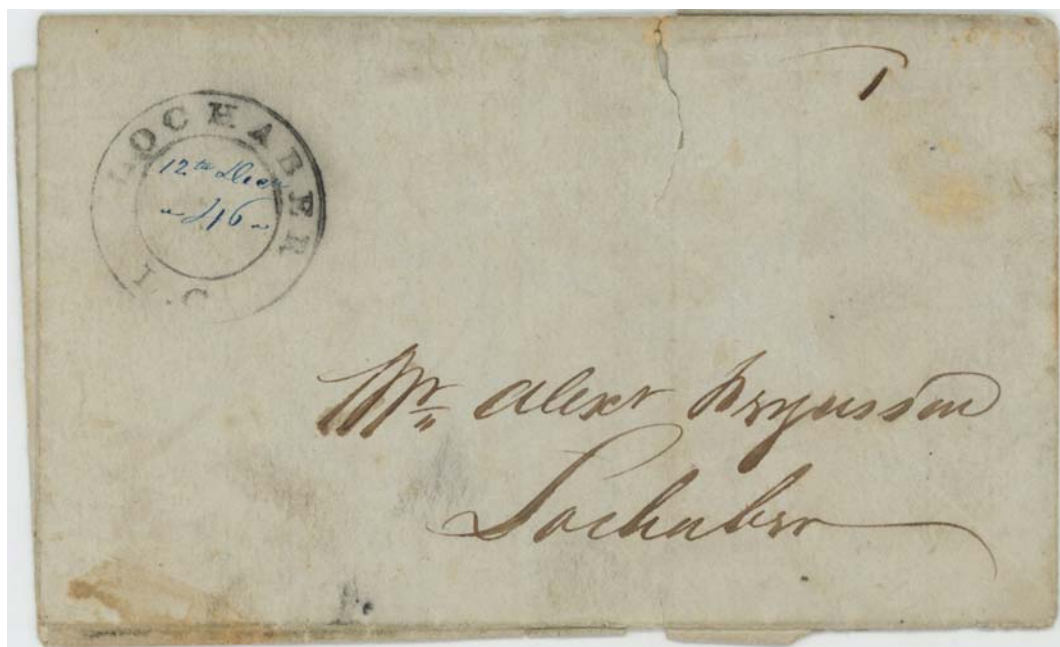 1
LOCHABER
12th Decr
46
L.C.
Mr Alexr Fergusson
Lochaber